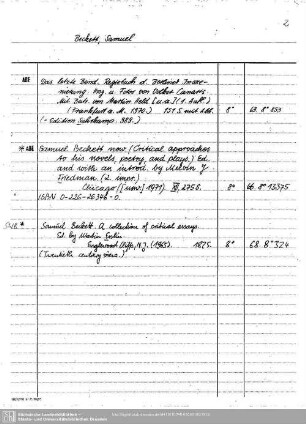 2
Beckett, Samuel
ABE Das letzte Band. Regiebuch d. Berliner Insze-
nierung. Hrsg. u. Fotos von Volker Canaris.
Mit Beitr. von Martin Held [u.a.] (1. Aufl.)
(Frankfurt a. M. 1970.) 151 S. mit Abb. 8° 69. 8° 153
(= edition suhrkamp. 389.)
* ABE Samuel Beckett now. (Critical approaches
to his novels, poetry, and plays.) Ed.
and with an introd. by Melvin J.
Friedman. (2. impr.)
Chicago ([usw.] 1971). XI, 275 S. 8° 66. 8° 13375
ISBN 0-226-26346-0.
* Samuel Beckett. A collection of critical essays.
Ed. by Martin Esslin
Englewood Cliffs, N.J. (1965). 182 S. 8° 68. 8° 324
(Twentieth century views.)